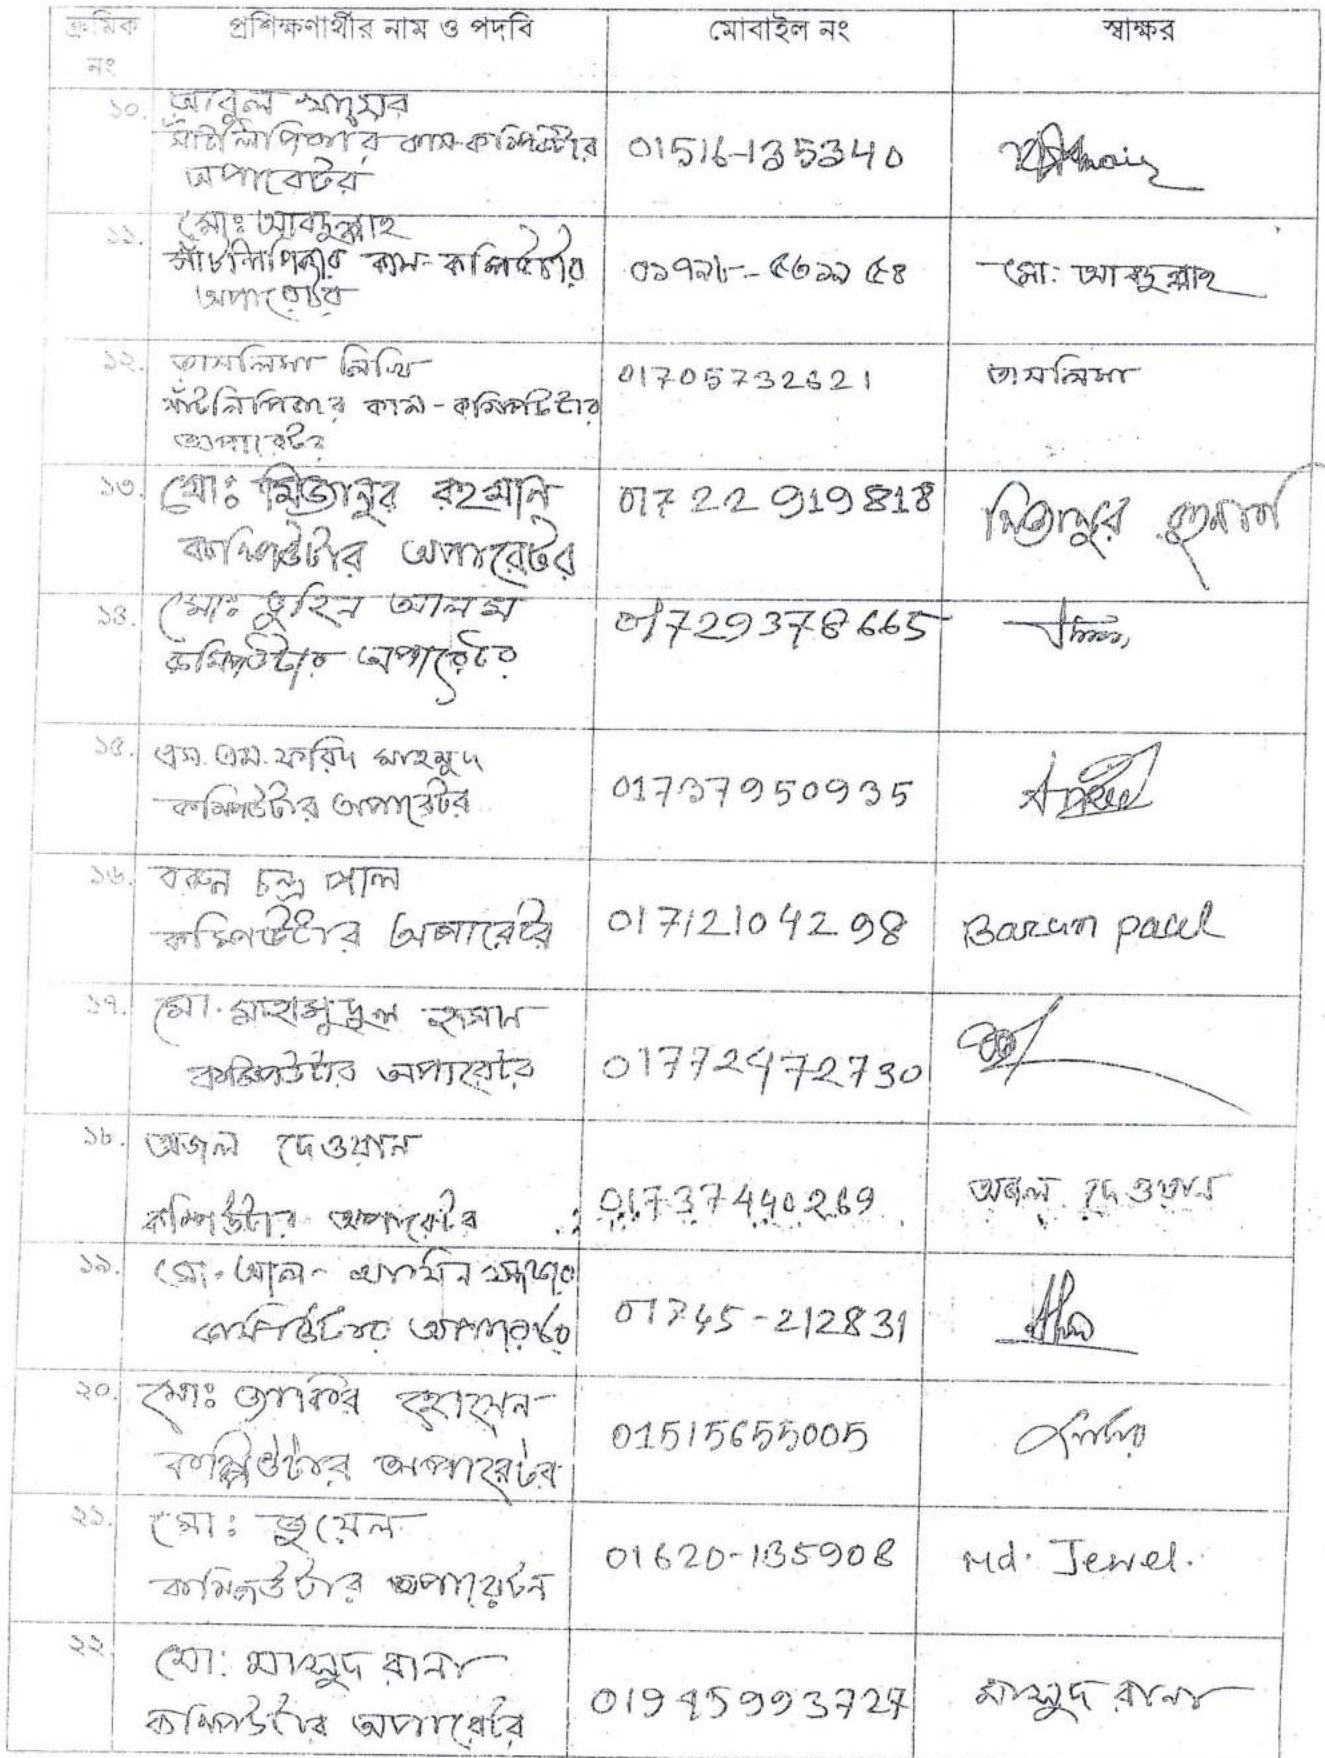 ক্রমিক নং প্রশিক্ষণার্থীর নাম ও পদবি মোবাইল নং স্বাক্ষর
১০. আবুল খায়ের
সাঁটলিপিকার কাম-কম্পিউটার 01516-135340
অপারেটর
১১. মোঃ আবদুল্লাহ
সাঁটলিপিকার কাম-কম্পিউটার ০১৭৯৮-৫৬১৯৫৪ মো: আবদুল্লাহ
অপারেটর
১২. তাসলিমা লিপি 01705732621 তাসলিমা
সাঁটলিপিকার কাম-কম্পিউটার
অপারেটর
১৩. মোঃ মিজানুর রহমান 01722919818 মিজানুর রহমান
কম্পিউটার অপারেটর
১৪. মোঃ তুহিন আলম 01729378665
কম্পিউটার অপারেটর
১৫. এস.এম. ফরিদ মাহমুদ
কম্পিউটার অপারেটর 01737950935
১৬. বরুন চন্দ্র পাল
কম্পিউটার অপারেটর 01712104298 Barun paul
১৭. মো. মাহামুদুল হাসান
কম্পিউটার অপারেটর 01772472730
১৮. অজল দেওয়ান
কম্পিউটার অপারেটর 01737440269 অজল দেওয়ান
১৯. মো. আল-আমিন
কম্পিউটার অপারেটর 01745-212831
২০. মোঃ জাকির হোসেন
কম্পিউটার অপারেটর 01515655005
২১. মো: জুয়েল
কম্পিউটার অপারেটর 01620-135908 Md. Jewel.
২২ মো: মাসুদ রানা
কম্পিউটার অপারেটর 01945993727 মাসুদ রানা